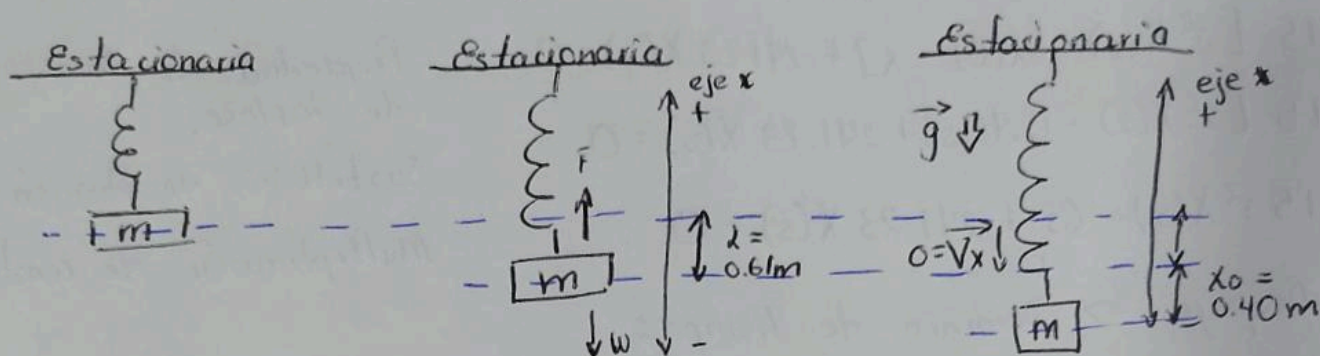 Estacionaria
m
Estacionaria
eje x
+
F
λ =
0.61m
m
w
-
Estacionaria
eje x
+
g
0 = Vx
x0 =
0.40 m
m